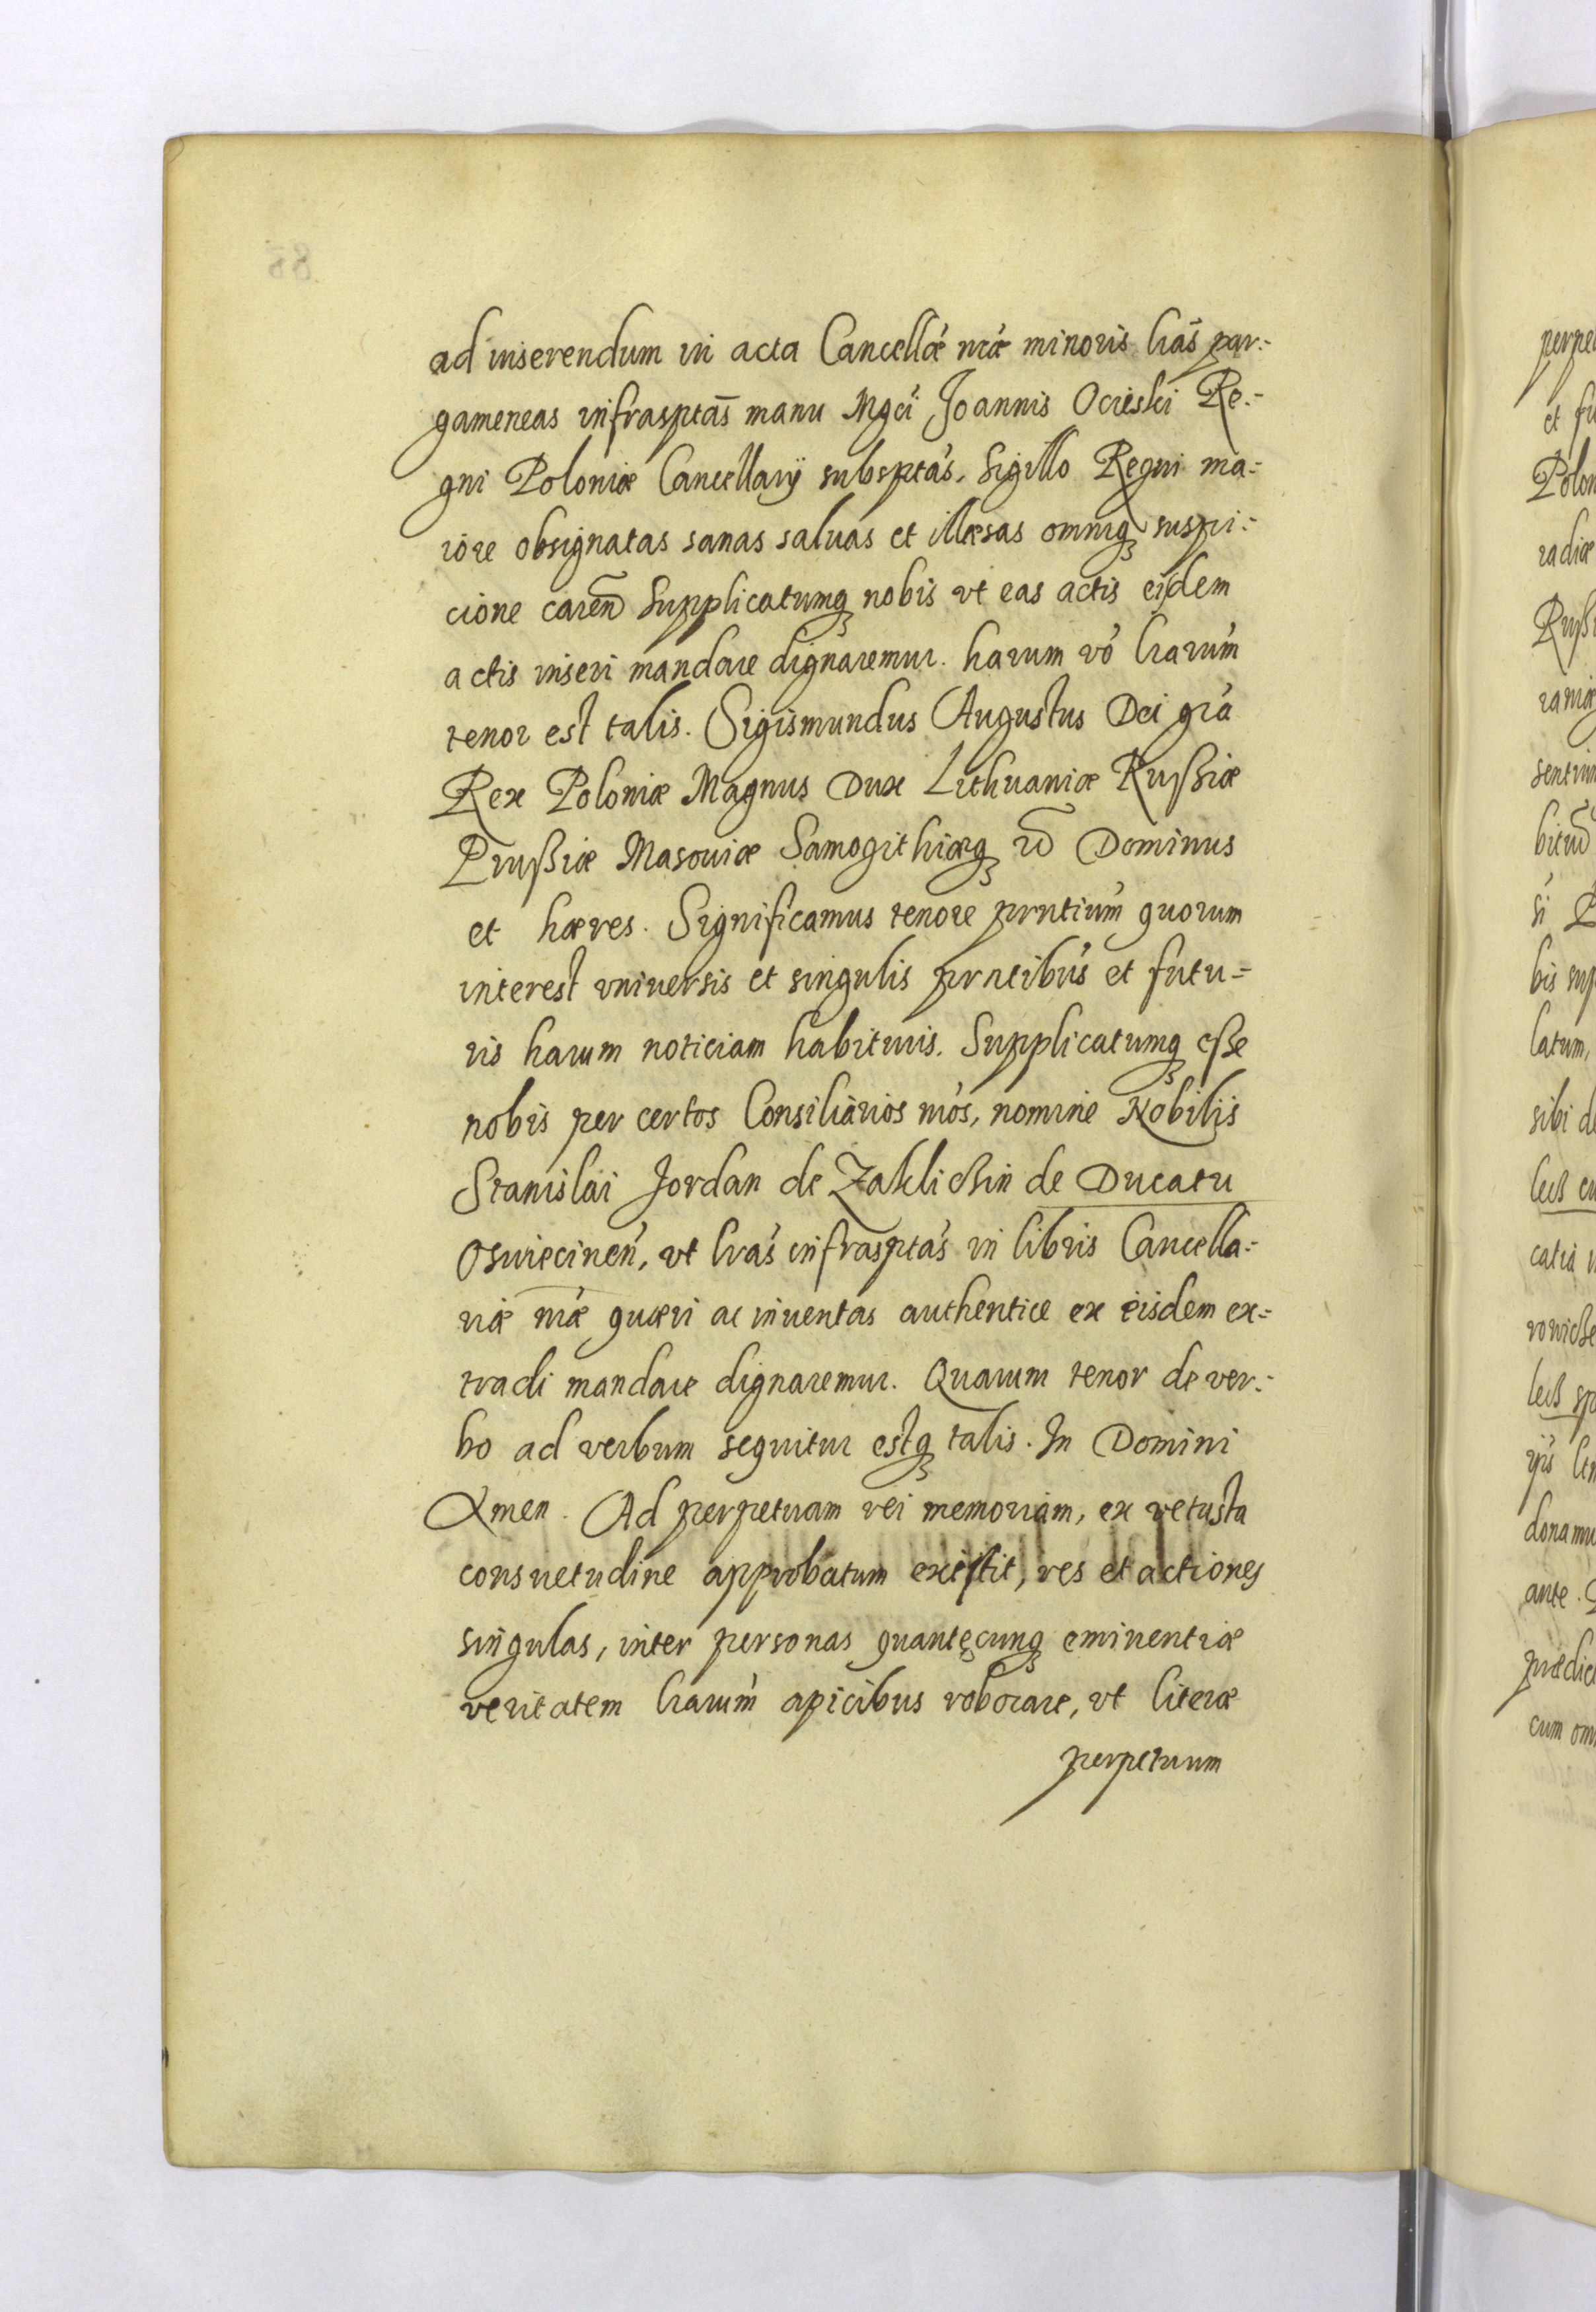 ad inserendum in acta Cancellæ nræ minoris lras par:-
gameneas infrasptas manu Mgci Joannis Ocieski Re:-
gni Poloniæ Cancellarij subsptas, Sigillo Regni ma:-
iore obsignatas sanas saluas et illæsas omniq suspi:-
cione caren Supplicatumq nobis vt eas actis eisdem
actis inseri mandare dignaremur. harum vo lrarum
tenor est talis. Sigismundus Augustus Dei gra
Rex Poloniæ Magnus Dux Lithuaniæ Rußiæ
Prußiæ Masouiæ Samogithiæq Dominus
et hæres. Significamus tenore prntium quorum
interest vniuersis et singulis prntibus et futu:-
ris harum noticiam habituris. Supplicatumq eße
nobis per certos Consiliarios nros, nomine Nobilis
Stanislai Jordan de Zaklichin de Ducatu
Oswiecinen, vt lras infrasptas in libris Cancella:-
riæ nræ quæri ac inuentas authentice ex eisdem ex:-
tradi mandare dignaremur. Quarum tenor de ver:-
bo ad verbum sequitur estq talis. In Domini
Amen. Ad perpetuam rei memoriam, ex vetusta
consuetudine approbatum existit, res et actiones
singulas, inter personas quantęcunq eminentiæ
veritatem lrarum apicibus roborare, vt literæ
perpetuum